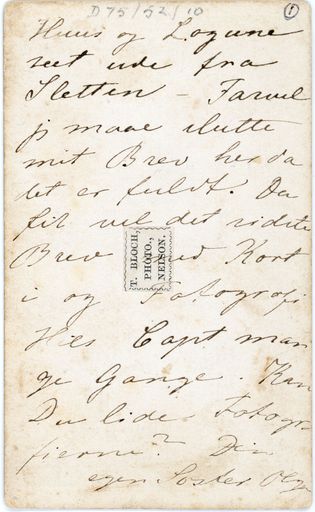 D75/52/10
1
Huus og Logune
seet ude fra
Sletten - Farvel
jeg maae slutte
mit Brev her da
det er fuldt. Du
fik vel det sidste
Brev med Kort
i og Fotografi
Hils Capt man
ge Gange. Kan
Du lide Fotogra
fierne? Din
egen Søster Olga
T. BLOCH,
PHOTO.,
NELSON.